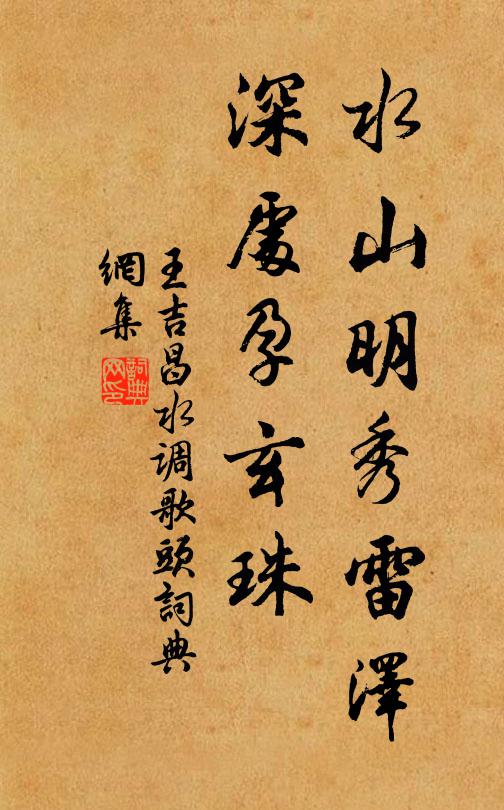 水山明秀雷澤
深處孕玄珠
王吉昌水调歌頭詞典
網集
詞典
网印